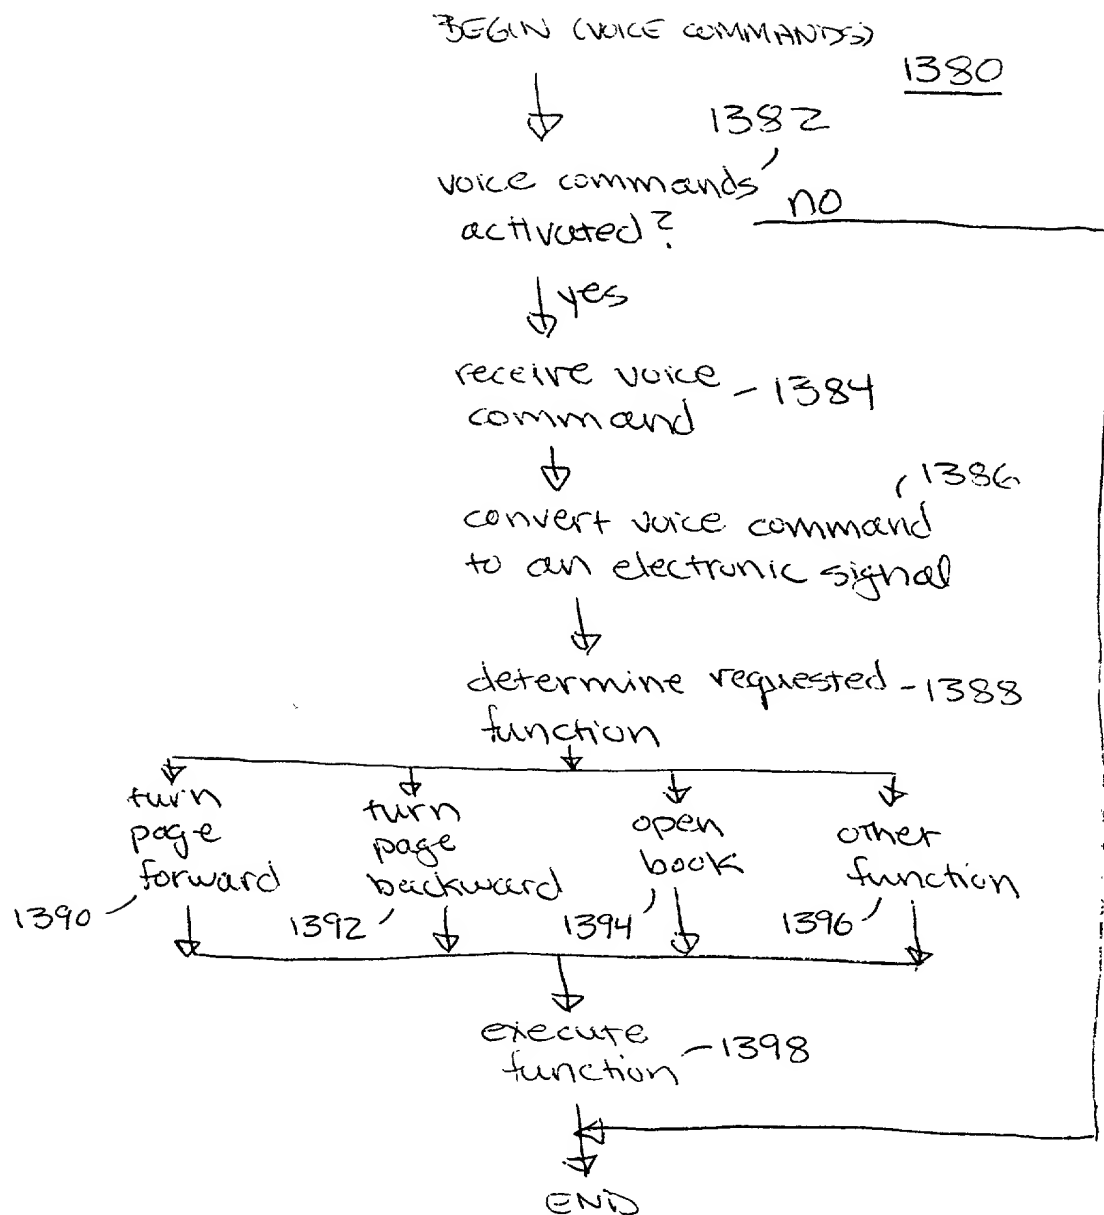 BEGIN (VOICE COMMANDS)
1380
1382
voice commands
activated?
no
yes
receive voice
command
1384
1386
convert voice command
to an electronic signal
determine requested
function
1388
turn
page
forward
1390
turn
page
backward
1392
open
book
1394
other
function
1396
execute
function
1398
END